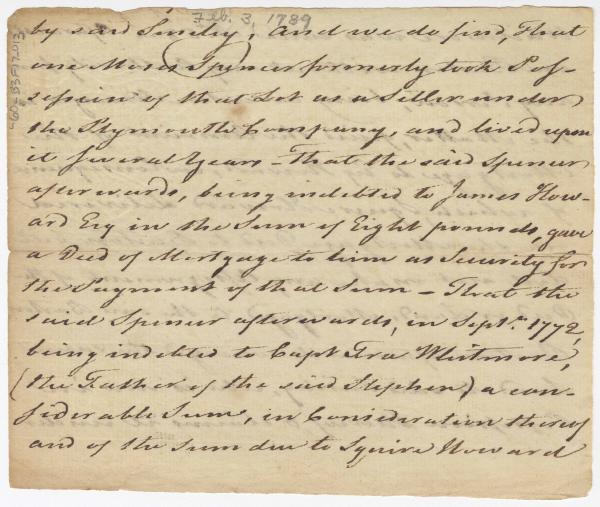 Feb. 3, 1789
by said Smiley; And we do find, That
one Moses Spencer formerly took Pos-
session of that Lot as a Settler under
the Plymouth Company, and lived upon
it several Years - That the said Spencer
afterwards, being indebted to James How-
ard Esq in the Sum of Eight pounds, gave
a Deed of Mortgage to him as Security for
the Payment of that Sum - That the
said Spencer afterwards, in Sept.r 1772,
being indebted to Capt Fra Whitmore,
(the Father of the said Stephen,) a con-
siderable Sum, in Consideration thereof
and of the sum due to Squire Howard